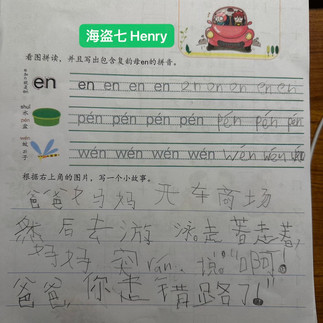 海盗七 Henry
看图拼读，并且写出包含复韵母en的拼音。
en en en en en en en en en en
shuǐ pén
水盆 pén pén pén pén pén pén pén
wén
蚊子 wén wén wén wén wén wén wén
根据右上角的图片，写一个小故事。
爸爸 妈妈 开车商场
然后去游泳走着走着，
妈妈突rán 说“啊！
爸爸，你走错路了！”